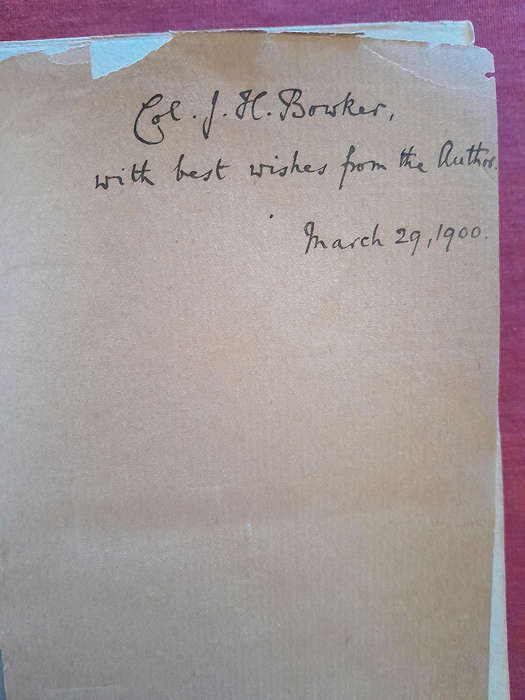 Col. J. H. Bowker,
with best wishes from the Author.
March 29, 1900.